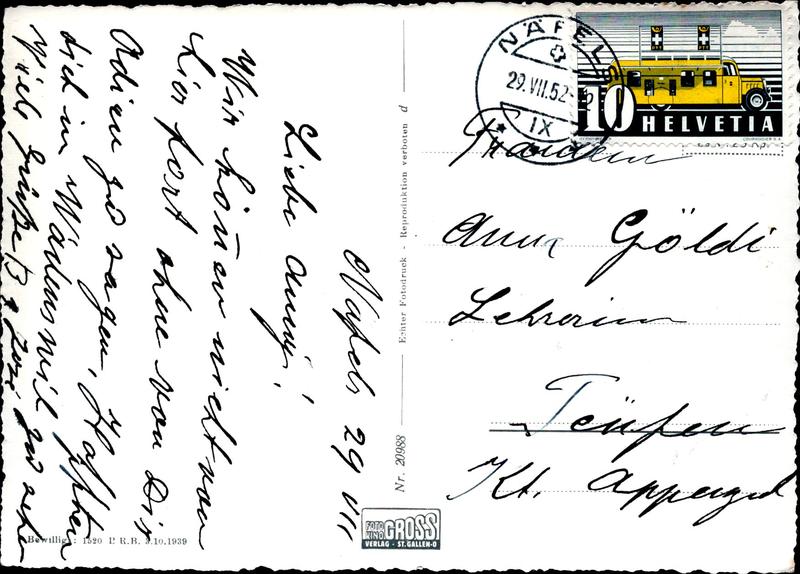 Näfels 29 VII
Liebe Anny!
Wir können nicht von
hier fort ohne von Dir
Adieu zu sagen. Hoffen
dich in Wädenswil zu sehen
Viele Grüße
NÄFELS
29.VII.52
IX
10 HELVETIA
COURVOISIER S.A.
Fräulein
Anna Göldi
Lehrerin
Teufen
Kt. Appenzell
Nr. 20988 Echter Fotodruck - Reproduktion verboten d
FOTO
KINO GROSS
VERLAG - ST. GALLEN-O
Bewillig. 1520 P.R.B. 3.10.1939